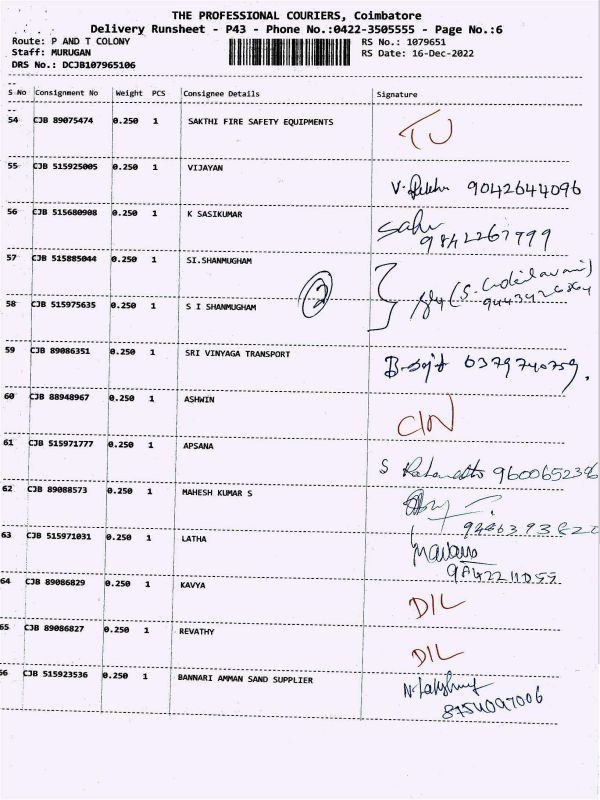 THE PROFESSIONAL COURIERS, Coimbatore
Delivery Runsheet - P43 - Phone No.:0422-3505555 - Page No.:6
Route: P AND T COLONY RS No.: 1079651
Staff: MURUGAN RS Date: 16-Dec-2022
DRS No.: DCJB107965106
S No Consignment No Weight PCS Consignee Details Signature
54 CJB 89075474 0.250 1 SAKTHI FIRE SAFETY EQUIPMENTS TJ
55 CJB 515925005 0.250 1 VIJAYAN
V. 9042644096
56 CJB 515680908 0.250 1 K SASIKUMAR
9842267999
57 CJB 515885044 0.250 1 SI.SHANMUGHAM
2
58 CJB 515975635 0.250 1 S I SHANMUGHAM
59 CJB 89086351 0.250 1 SRI VINYAGA TRANSPORT
6379740759.
60 CJB 88948967 0.250 1 ASHWIN
CIN
61 CJB 515971777 0.250 1 APSANA
S
62 CJB 89088573 0.250 1 MAHESH KUMAR S
63 CJB 515971031 0.250 1 LATHA
9842211055
64 CJB 89086829 0.250 1 KAVYA
DIL
65 CJB 89086827 0.250 1 REVATHY
DIL
66 CJB 515923536 0.250 1 BANNARI AMMAN SAND SUPPLIER
8754097006